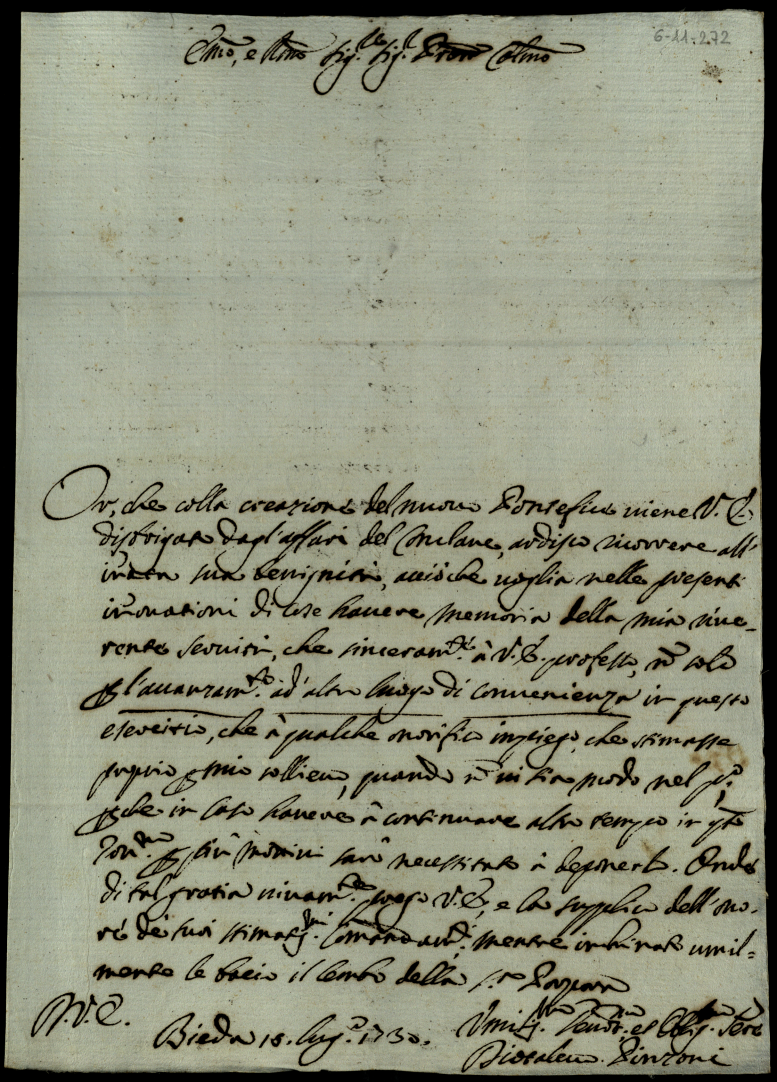 6-11-272
Emo, e Rmo Sig.re Sig.r Pron Colmo
Or, che colla creazione del nuovo Pontefice viene V. E.
disbrigata dagl'affari del Conclave, ardisco ricorrere all'
innata sua benignità, acciò che voglia nelle presenti
innovationi di cose havere memoria della mia rive-
rente servitù, che sinceram.te à V. E. professo, nō solo
p l'avanzam.to ad altro luogo di convenienza in questo
esercitio, che à qualche onorifico impiego, che stimasse
proprio p mio sollievo, quando nō vi sia modo nel p.o,
p che in caso havere à continuare altro tempo in qto
p più motivi sarò necessitato à deponerlo. Onde
di tal gratia vivam.te prego V. E., e la supplico dell'ono-
re de suoi stimatis.mi Comandam.ti, mentre inchinato umil-
mente le bacio il lembo della Porpora
D. V. E.
Bieda 15. Lug.o 1730.
Umilis.mo Devot.mo et Oblig.mo Serv.re
Pinzoni